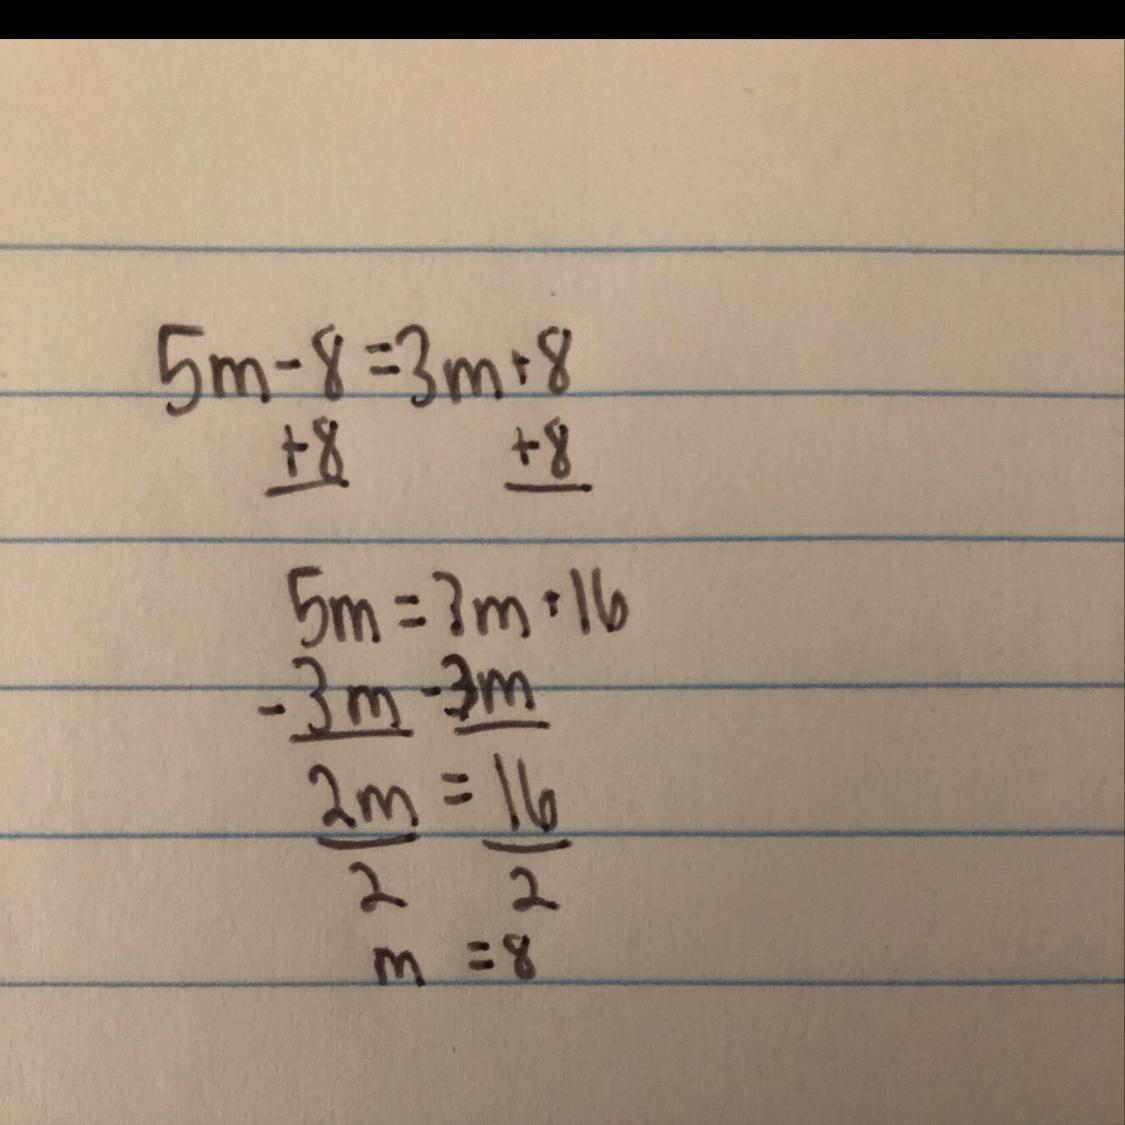 5m-8=3m+8
+8 +8
5m=3m+16
-3m -3m
2m = 16
2 2
m =8